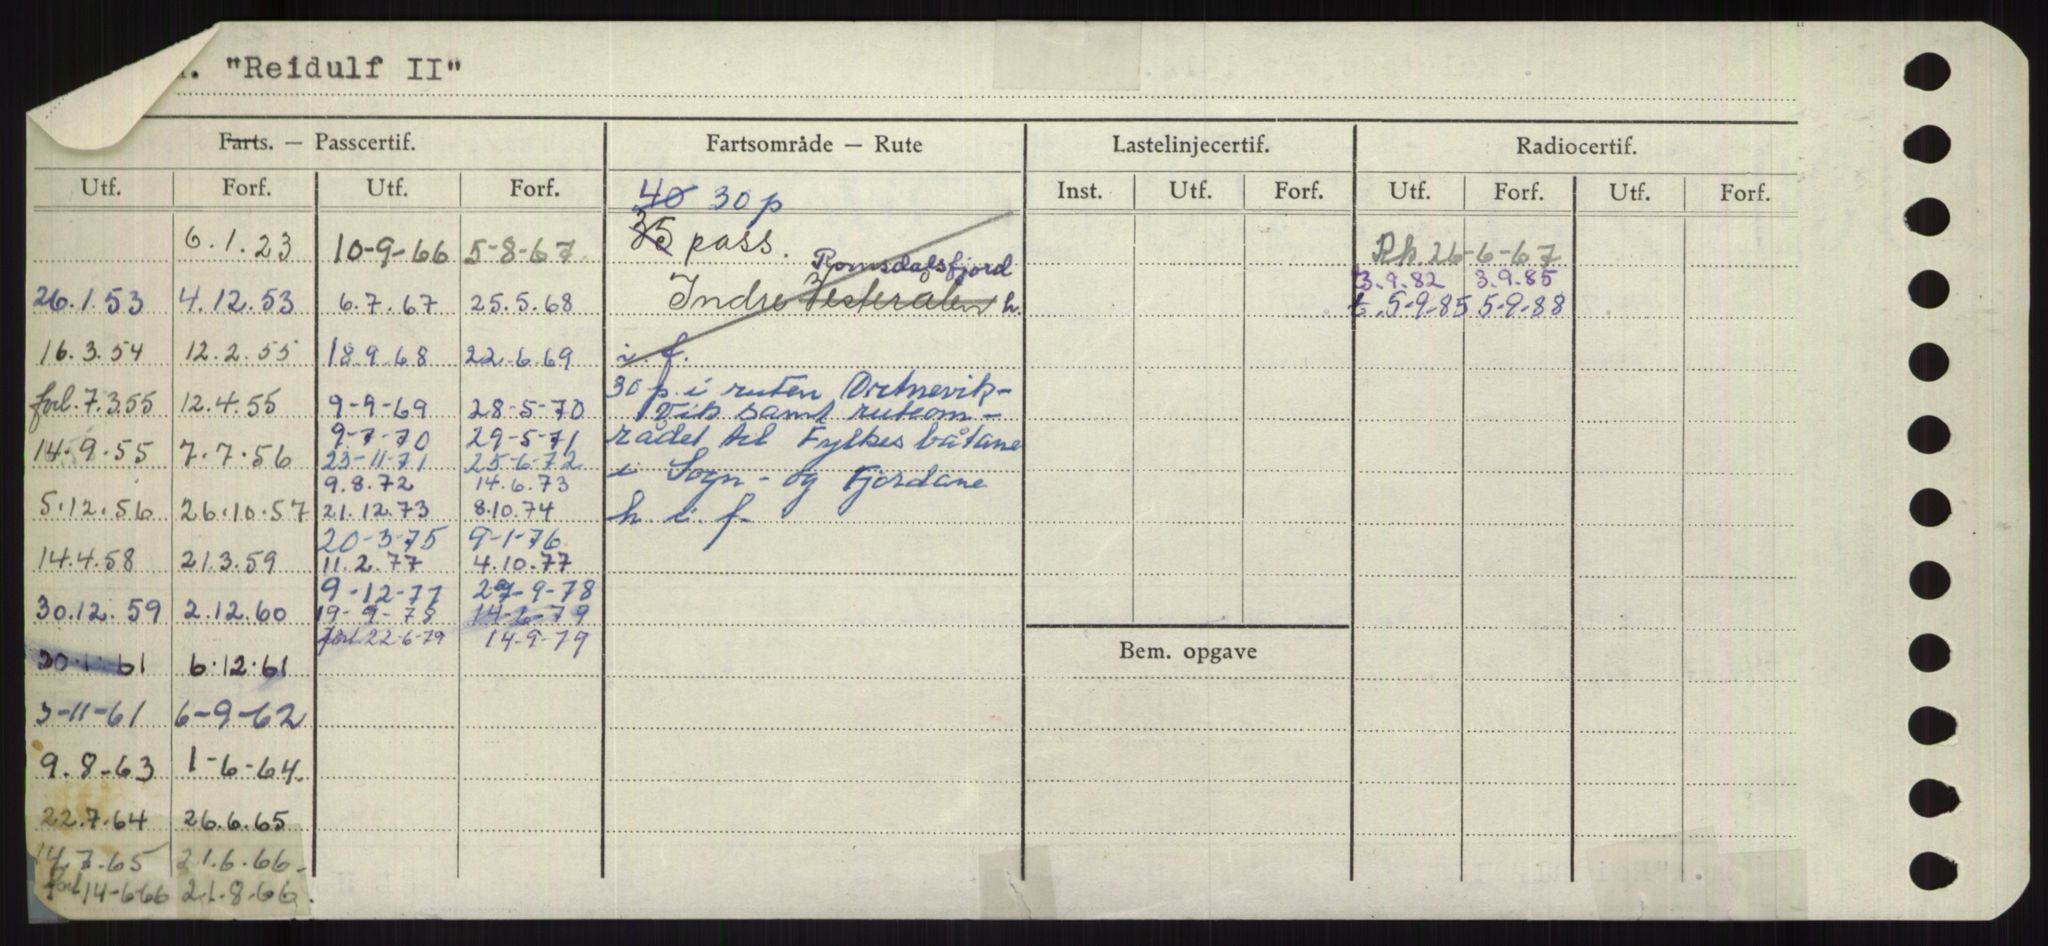 . "Reidulf II"
Farts. — Passcertif. Fartsområde — Rute Lastelinjecertif. Radiocertif.
Utf. Forf. Utf. Forf. Inst. Utf. Forf. Utf. Forf. Utf. Forf.
40 30 p
6.1.23 10-9-66 5-8-67 35 pass. Rh 26-6-67
Romsdalsfjord 3.9.82 3.9.85
26.1.53 4.12.53 6.7.67 25.5.68 Indre Vesterålen h. t. 5-9-85 5-9-88
16.3.54 12.2.55 18.9.68 22.6.69 i. f.
30 p. i ruten Ortnevik-
forl. 7.3.55 12.4.55 9-9-69 28-5-70 Vik samt ruteom-
9-7-70 29-5-71 rådet til Fylkesbåtane
14.9.55 7.7.56 23-11-71 25-6-72
9.8.72 14.6.73 i Sogn- og Fjordane
5.12.56 26.10.57 21.12.73 8.10.74 h. i. f.
20-3-75 9-1-76
14.4.58 21.3.59 11.2.77 4.10.77
9-12-77 29-9-78
30.12.59 2.12.60 19-9-78 14-6-79
forl. 22-6-79 14-9-79
Bem. opgave
20.1.61 6.12.61
3-11-61 6-9-62
9.8-63 1-6-64.
22.7.64 26.6.65
14.7.65 21.6.66-
forl 14-6-66 21.8.66.